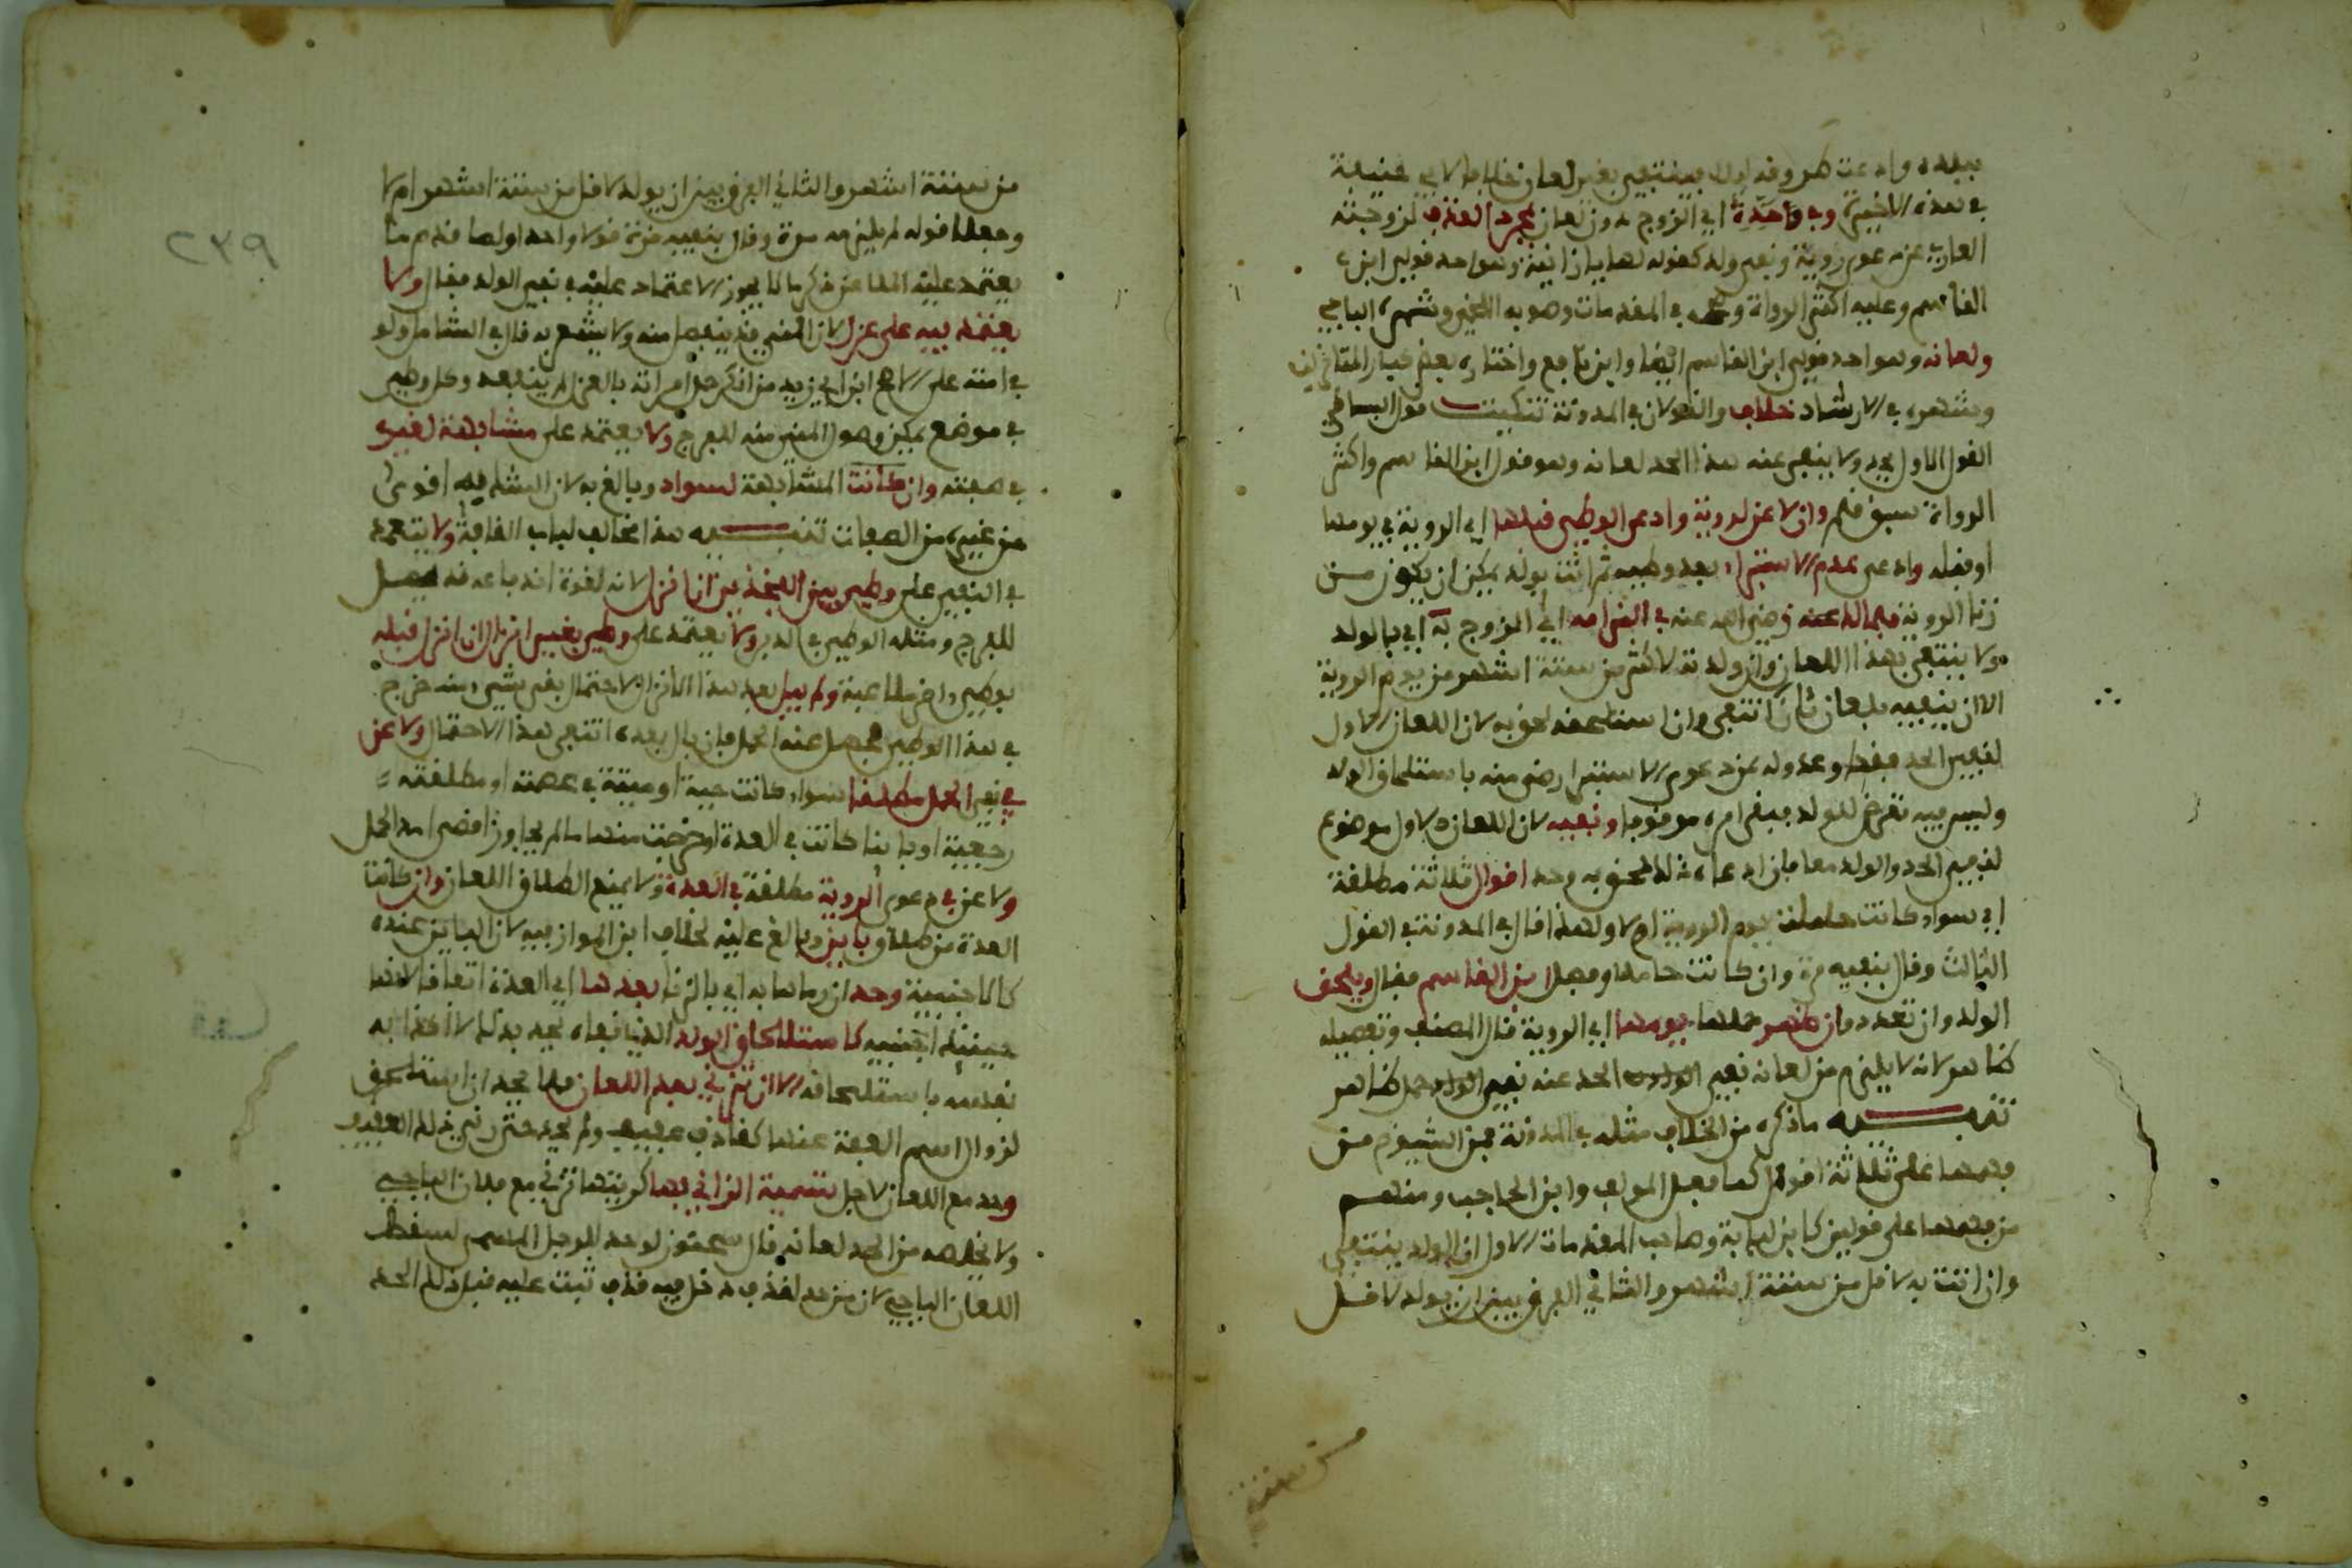 ببلده وادعت طروقه اياه فينتفي بغير لعان خلافا لابي حنيفة
في هذه الاخيرة وفي وحده اي الزوج دون لعان بمجرد القذف لزوجته
العاري عن دعوى روية ونفي ولد كقوله لها يا زانية وهو احد قولي ابن
القاسم وعليه اكثر الرواة في المقدمات وصوبه اللخمي وشهره الباجي
ولعانه وهو احد قولي ابن القاسم ايضا وابن نافع واختاره بعض كبار المتاخرين
وشهره في الارشاد خلاف والقولان في المدونة تنكيت قول البساطي
القول الاول يحد ولا ينفي عنه هذا الحد لعانه وهو قول ابن القاسم واكثر
الرواة سبق قلم وان لاعن لروية وادعى الوطي قبلها اي الروية في يومها
او قبله وادعى عدم الاستبرا بعد وطيه ثم اتت بولد يمكن ان يكون من
زنا الروية فلمالك رضي الله عنه في الزامه اي الزوج به اي بالولد
ولا ينتفي بهذا اللعان وان ولدته لاكثر من ستة اشهر من يوم الروية
الا ان ينفيه بلعان ثان انتفى وان استلحقه لحق به لان اللعان الاول
لنفي الحد فقط وعدوله عن دعوى الاستبرا رضى منه باستلحاق الولد
وليس فيه تعرض للولد فيبقى امره موقوفا ونفيه لان اللعان الاول موضوع
لنفي الحد والولد معا فان ادعاه بعد ذلك لحق به وحد اقوال ثلاثة مطلقة
اي سواء كانت حاملة يوم الروية ام لا ولهذا قال في المدونة في القول
الثالث وقال بنفيه مرة وان كانت حاملا وفصل ابن القاسم فقال ويلحق
الولد وان تعدد وان ظهر حملها يومها اي الروية قال المصنف وتفصيله
ظاهر لانه لا يلزم من لعانه نفي الحد عنه نفي الولد حمل ظاهر
تنبيه ما ذكره من الخلاف مثله في المدونة فمن الشيوخ من
فهمها على ثلاثة اقوال كما فعل المولف وابن الحاجب ومنهم
من فهمها على قولين كابن لبابة وصاحب المقدمات الاول ان الولد ينتفي
وان اتت به لاقل من ستة اشهر والثاني الفرق بين ان يولد لاقل
من ستة
٢٣٩
من ستة اشهر والثاني الفرق بين ان يولد لاقل من ستة اشهر ام لا
وجعلا قوله لم يلزمه مرة وقال بنفيه مرة قولا واحدا ولما قدم ما
يعتمد عليه الملاعن ذكر ما لا يجوز الاعتماد عليه في نفي الولد فقال ولا
يعتمد فيه على عزل لان المني قد ينفصل منه ولا يشعر به قال في الشامل ولو
في امته على الاصح ابن ابي زيد من انكر حمل امراته بالعزل لم ينفعه وكل وطي
في موضع يمكن وصول المني منه للفرج ولا يعتمد على مشابهة لغيره
في صفته وان كانت المشابهة لسواد وبالغ به لان الشبه فيه اقوى
من غيره من الصفات تنبيه هذا مخالف لباب القافة ولا يعتمد
في النفي على وطي بين الفخذين ان انزل لانه لقوة اندفاعه قد يصل
للفرج ومثله الوطي في الدبر ولا يعتمد على وطي بغير انزال ان انزل قبله
بوطي اخر ملاعبة ولم يبل بعد هذا الانزال لاحتمال بقى شي منه خرج
في هذا الوطي فحصل عنه الحمل فان بال بعده انتفى هذا الاحتمال ولاعن
في نفي الحمل مطلقا سواء كانت حية او ميتة في عصمته او مطلقته
رجعية او باينا كانت في العدة او خرجت منها ما لم يجاوز اقصى امد الحمل
ولاعن في دعوى الروية مطلقة في العدة ولا يمنع الطلاق اللعان وان كانت
العدة من طلاق باين وبالغ عليه لخلاف ابن المواز فيه لان الباين عنده
كالاجنبية وحد ان رماها به اي بالزنا بعدها اي العدة اتفاقا لانها
حينئذ اجنبية كاستلحاق الولد الذي نفاه يحد بذلك لاكذابه
نفسه باستلحاقه الا ان تزني بعد اللعان فلا يحد ان استلحق
لزوال اسم العفة عنها كقاذف عفيف ولم يحد حتى زنى ذلك العفيف
وحد مع اللعان لاجل تسمية الزاني بها كرايتها تزني مع فلان الباجي
ولا يخلصه من الحد لعانه قال سحنون لو حد للرجل المسمى لسقط
اللعان الباجي لان من حد لقذف دخل فيه قذف ثبت عليه قبل ذلك الحد